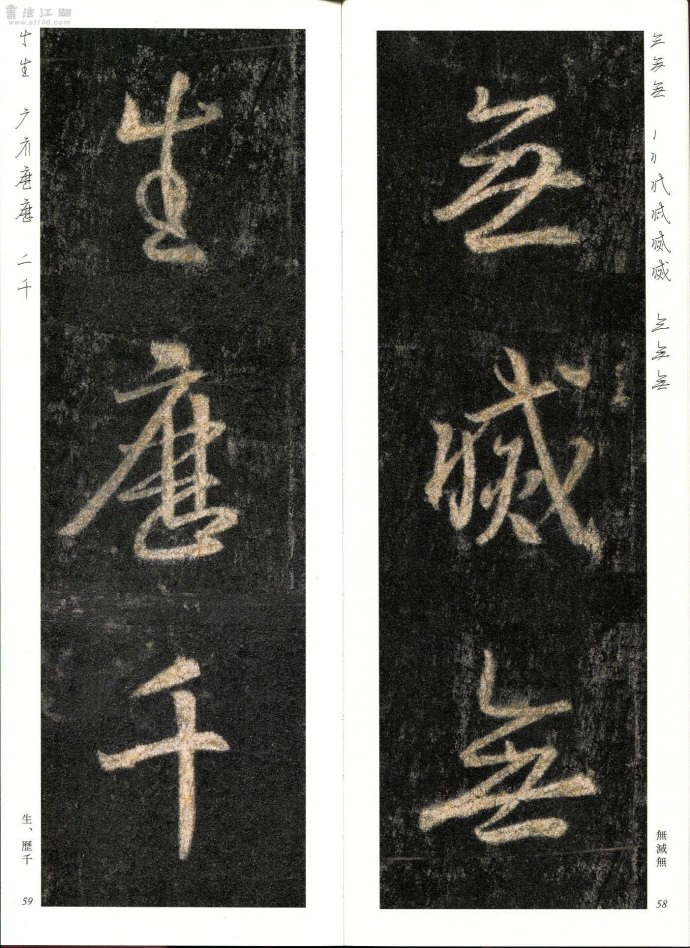 無滅無
無滅無
58
生歷千
生、歷千
59
書法江湖
www.sf108.com